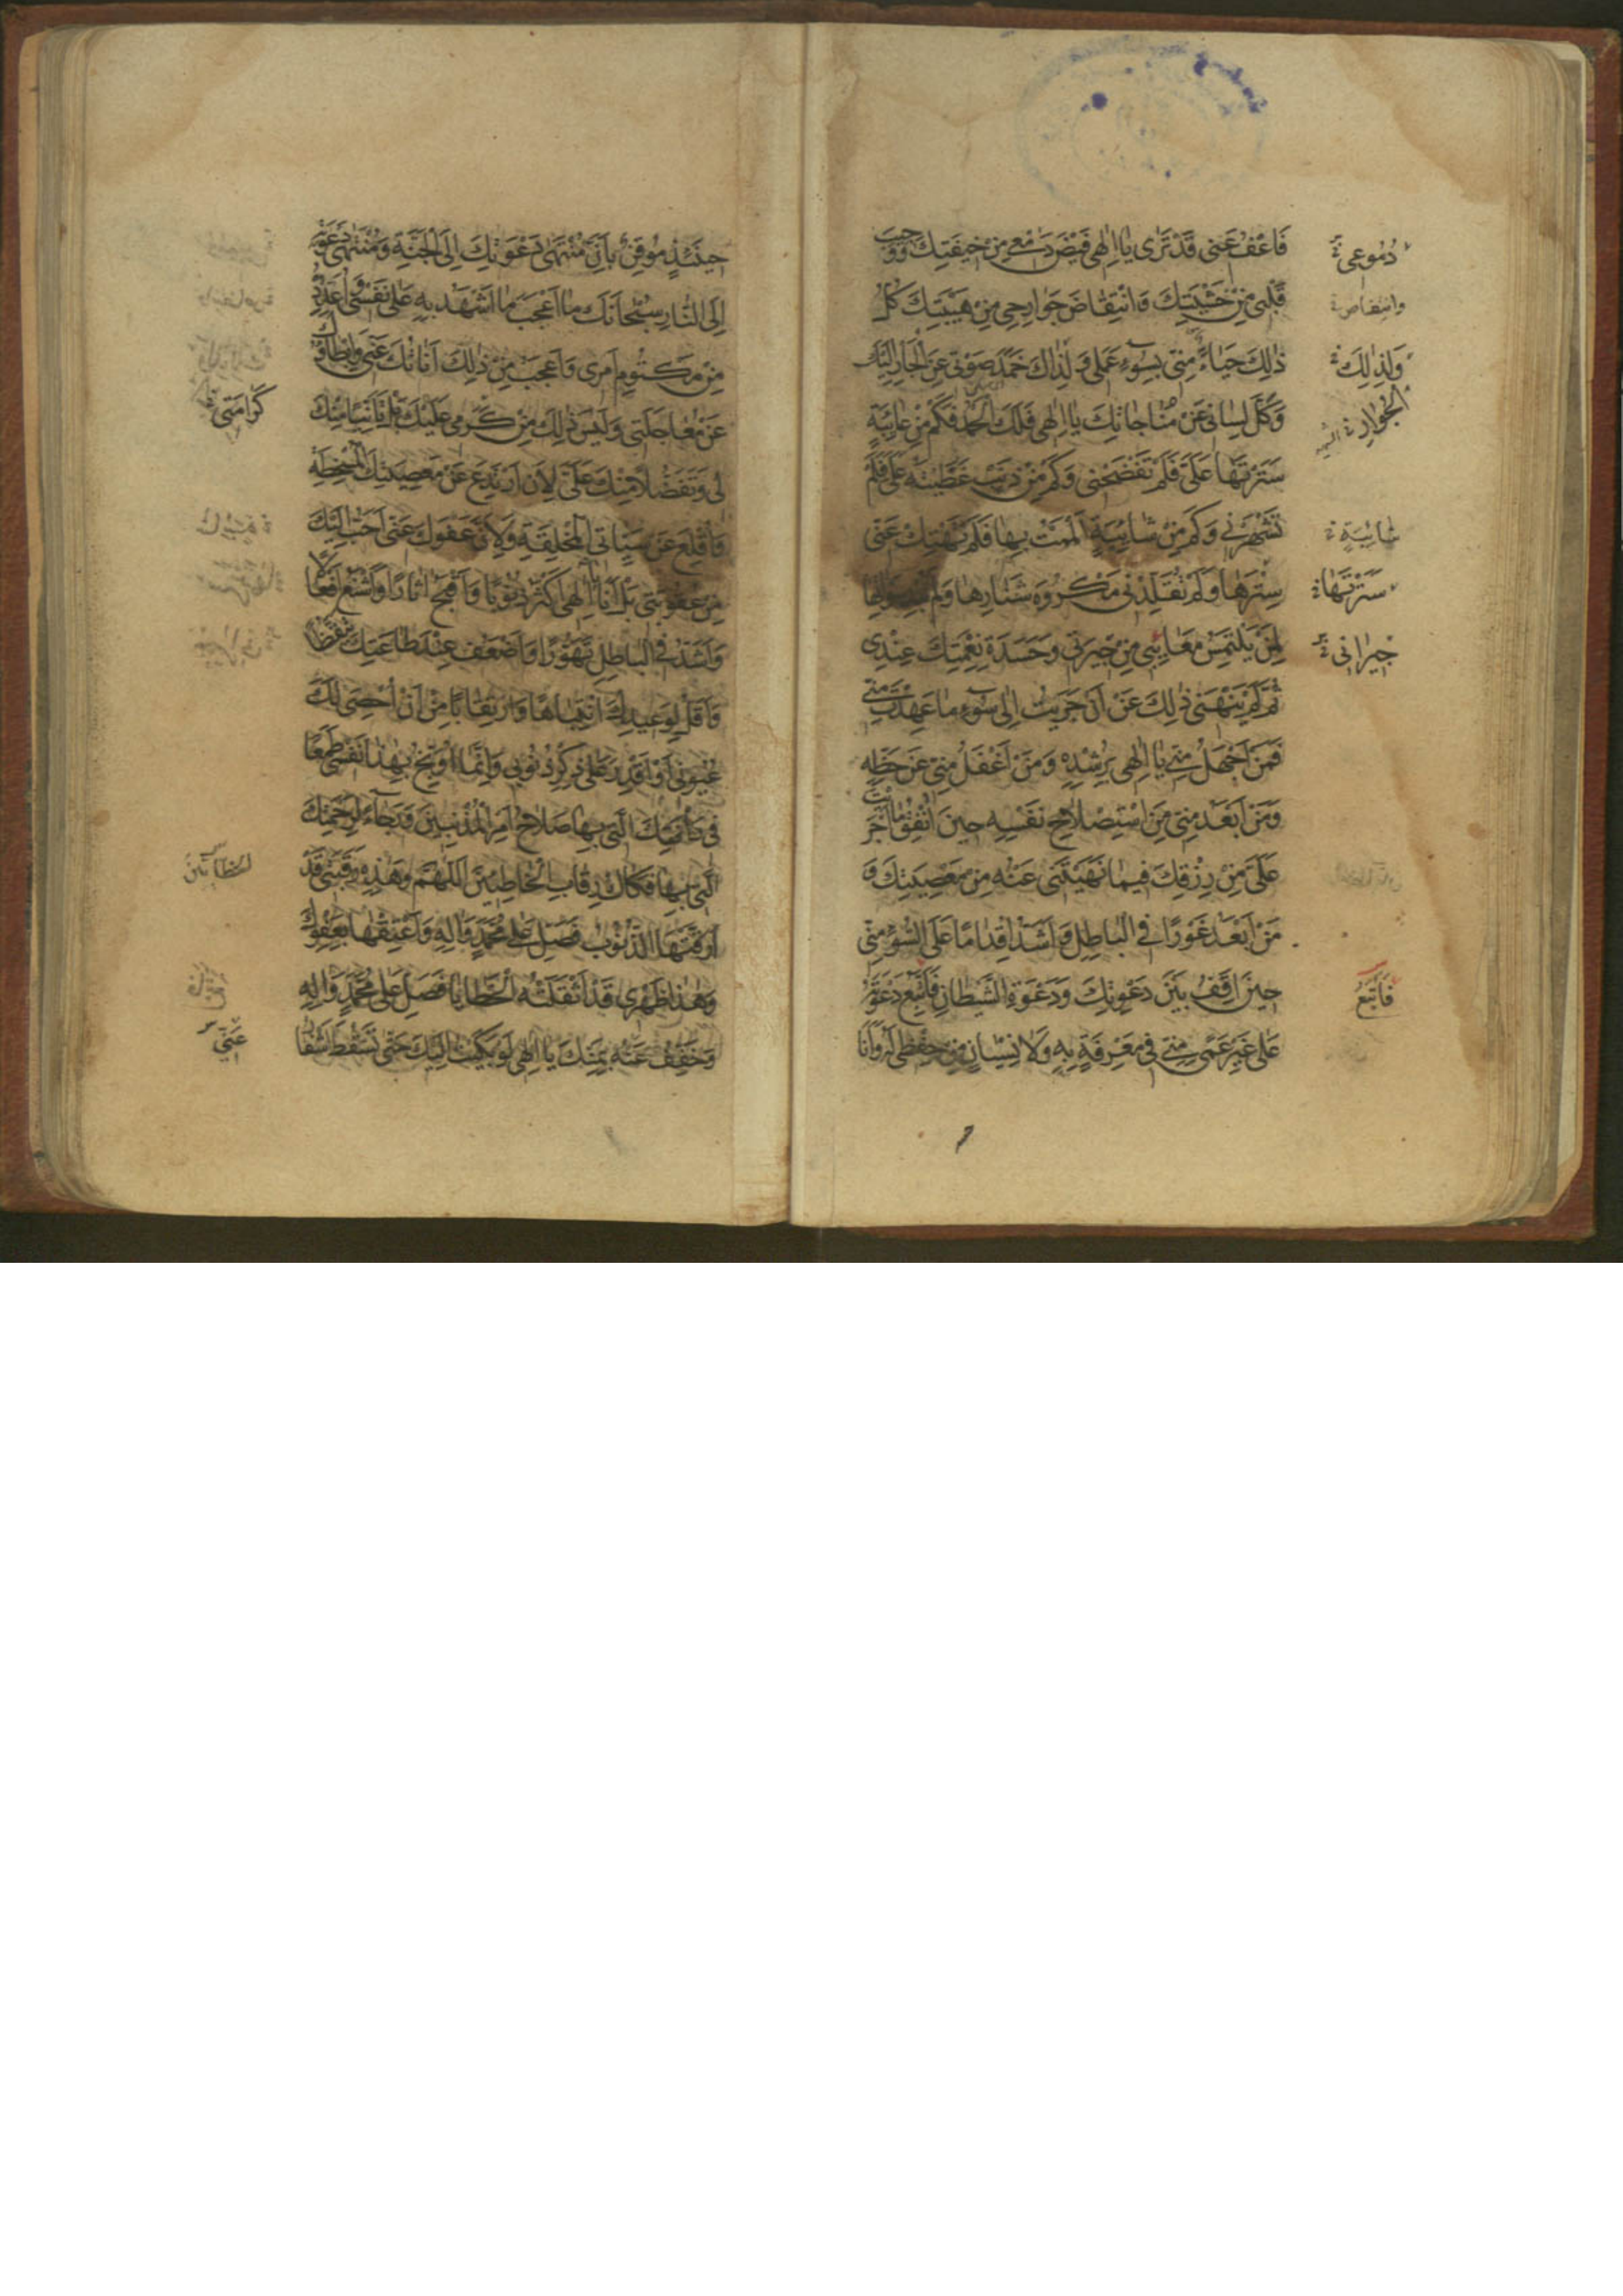 فَاعْفُ عَنّي قَدْ تَرٰى يٰا اِلٰهي فَيْضَ دَمْعي مِنْ خيفَتِكَ وَوَجيبَ
قَلْبي مِنْ خَشْيَتِكَ وَانْتِقٰاضَ جَوٰارِحي مِنْ هَيْبَتِكَ كُلُّ
ذٰلِكَ حَيٰاءً مِنّي بِسُوءِ عَمَلي وَلِذٰاكَ خَمَدَ صَوْتي عَنِ الْجَأْرِ اِلَيْكَ
وَكَلَّ لِسٰاني عَنْ مُنٰاجٰاتِكَ يٰا اِلٰهي فَلَكَ الْحَمْدُ فَكَمْ مِنْ عٰائِبَةٍ
سَتَرْتَهٰا عَلَيَّ فَلَمْ تَفْضَحْني وَكَمْ مِنْ ذَنْبٍ غَطَّيْتَهُ عَلَيَّ فَلَمْ
تَشْهَرْني وَكَمْ مِنْ شٰائِبَةٍ اَلْمَمْتُ بِهٰا فَلَمْ تَهْتِكْ عَنّي
سِتْرَهٰا وَلَمْ تُقَلِّدْني مَكْرُوهَ شَنٰارِهٰا وَلَمْ
لِمَنْ يَلْتَمِسُ مَعٰائِبي مِنْ جيرَتي وَحَسَدَةِ نِعْمَتِكَ عِنْدي
ثُمَّ لَمْ يَنْهَني ذٰلِكَ عَنْ اَنْ جَرَيْتُ اِلٰى سُوءِ مٰا عَهِدْتَ مِنّي
فَمَنْ اَجْهَلُ مِنّي يٰا اِلٰهي بِرُشْدِهِ وَمَنْ اَغْفَلُ مِنّي عَنْ حَظِّهِ
وَمَنْ اَبْعَدُ مِنّي مِنَ اسْتِصْلٰاحِ نَفْسِهِ حينَ اُنْفِقُ مٰا اَجْرَيْتَ
عَلَيَّ مِنْ رِزْقِكَ فيمٰا نَهَيْتَني عَنْهُ مِنْ مَعْصِيَتِكَ وَ
مَنْ اَبْعَدُ غَوْرًا فِي الْبٰاطِلِ وَاَشَدُّ اِقْدٰامًا عَلَى السُّوءِ مِنّي
حينَ اَقِفُ بَيْنَ دَعْوَتِكَ وَدَعْوَةِ الشَّيْطٰانِ فَاَتَّبِعُ دَعْوَتَهُ
عَلٰى غَيْرِ عَمًى مِنّي في مَعْرِفَةٍ بِهِ وَلٰا نِسْيٰانٍ مِنْ حِفْظي لَهُ وَاَنَا
دُمُوعي
وانتفاض
وَلِذٰلِكَ
شٰائِبَةٍ
سَتَرْتَهٰا
جيرٰاني
فَاَتَّبِعُ
حينَئِذٍ مُوقِنٌ بِاَنَّ مُنْتَهٰى دَعْوَتِكَ اِلَى الْجَنَّةِ وَمُنْتَهٰى دَعْوَتِهِ
اِلَى النّٰارِ سُبْحٰانَكَ مٰا اَعْجَبَ مٰا اَشْهَدُ بِهِ عَلٰى نَفْسي وَاُعَدِّدُهُ
مِنْ مَكْتُومِ اَمْري وَاَعْجَبُ مِنْ ذٰلِكَ اَنٰاتُكَ عَنّي وَاِبْطٰاؤُكَ
عَنْ مُعٰاجَلَتي وَلَيْسَ ذٰلِكَ مِنْ كَرَمي عَلَيْكَ بَلْ تَاَنِّيًا مِنْكَ
لي وَتَفَضُّلًا مِنْكَ عَلَيَّ لِاَنْ اَرْتَدِعَ عَنْ مَعْصِيَتِكَ الْمُسْخِطَةِ
وَاُقْلِعَ عَنْ سَيِّئٰاتي الْمُخْلِقَةِ وَلِاَنَّ عَفْوَكَ عَنّي اَحَبُّ اِلَيْكَ
مِنْ عُقُوبَتي بَلْ اَنَا يٰا اِلٰهي اَكْثَرُ ذُنُوبًا وَاَقْبَحُ اٰثٰارًا وَاَشْنَعُ اَفْعٰالًا
وَاَشَدُّ فِي الْبٰاطِلِ تَهَوُّرًا وَاَضْعَفُ عِنْدَ طٰاعَتِكَ تَيَقُّظًا
وَاَقَلُّ لِوَعيدِكَ انْتِبٰاهًا وَارْتِقٰابًا مِنْ اَنْ اُحْصِيَ لَكَ
عُيُوبي اَوْ اَقْدِرَ عَلٰى ذِكْرِ ذُنُوبي وَاِنَّمٰا اُوَبِّخُ بِهٰذٰا نَفْسي طَمَعًا
في رَأْفَتِكَ الَّتي بِهٰا صَلٰاحُ اَمْرِ الْمُذْنِبينَ وَرَجٰاءً لِرَحْمَتِكَ
الَّتي بِهٰا فَكٰاكُ رِقٰابِ الْخٰاطِئينَ اَللّٰهُمَّ وَهٰذِهِ رَقَبَتي قَدْ
اَرَقَّتْهَا الذُّنُوبُ فَصَلِّ عَلٰى مُحَمَّدٍ وَاٰلِهِ وَاَعْتِقْهٰا بِعَفْوِكَ
وَهٰذٰا ظَهْري قَدْ اَثْقَلَتْهُ الْخَطٰايٰا فَصَلِّ عَلٰى مُحَمَّدٍ وَاٰلِهِ
وَخَفِّفْ عَنْهُ بِمَنِّكَ يٰا اِلٰهي لَوْ بَكَيْتُ اِلَيْكَ حَتّٰى تَسْقُطَ اَشْفٰارُ
كَرٰامَتي
الخطائين
عَنّي